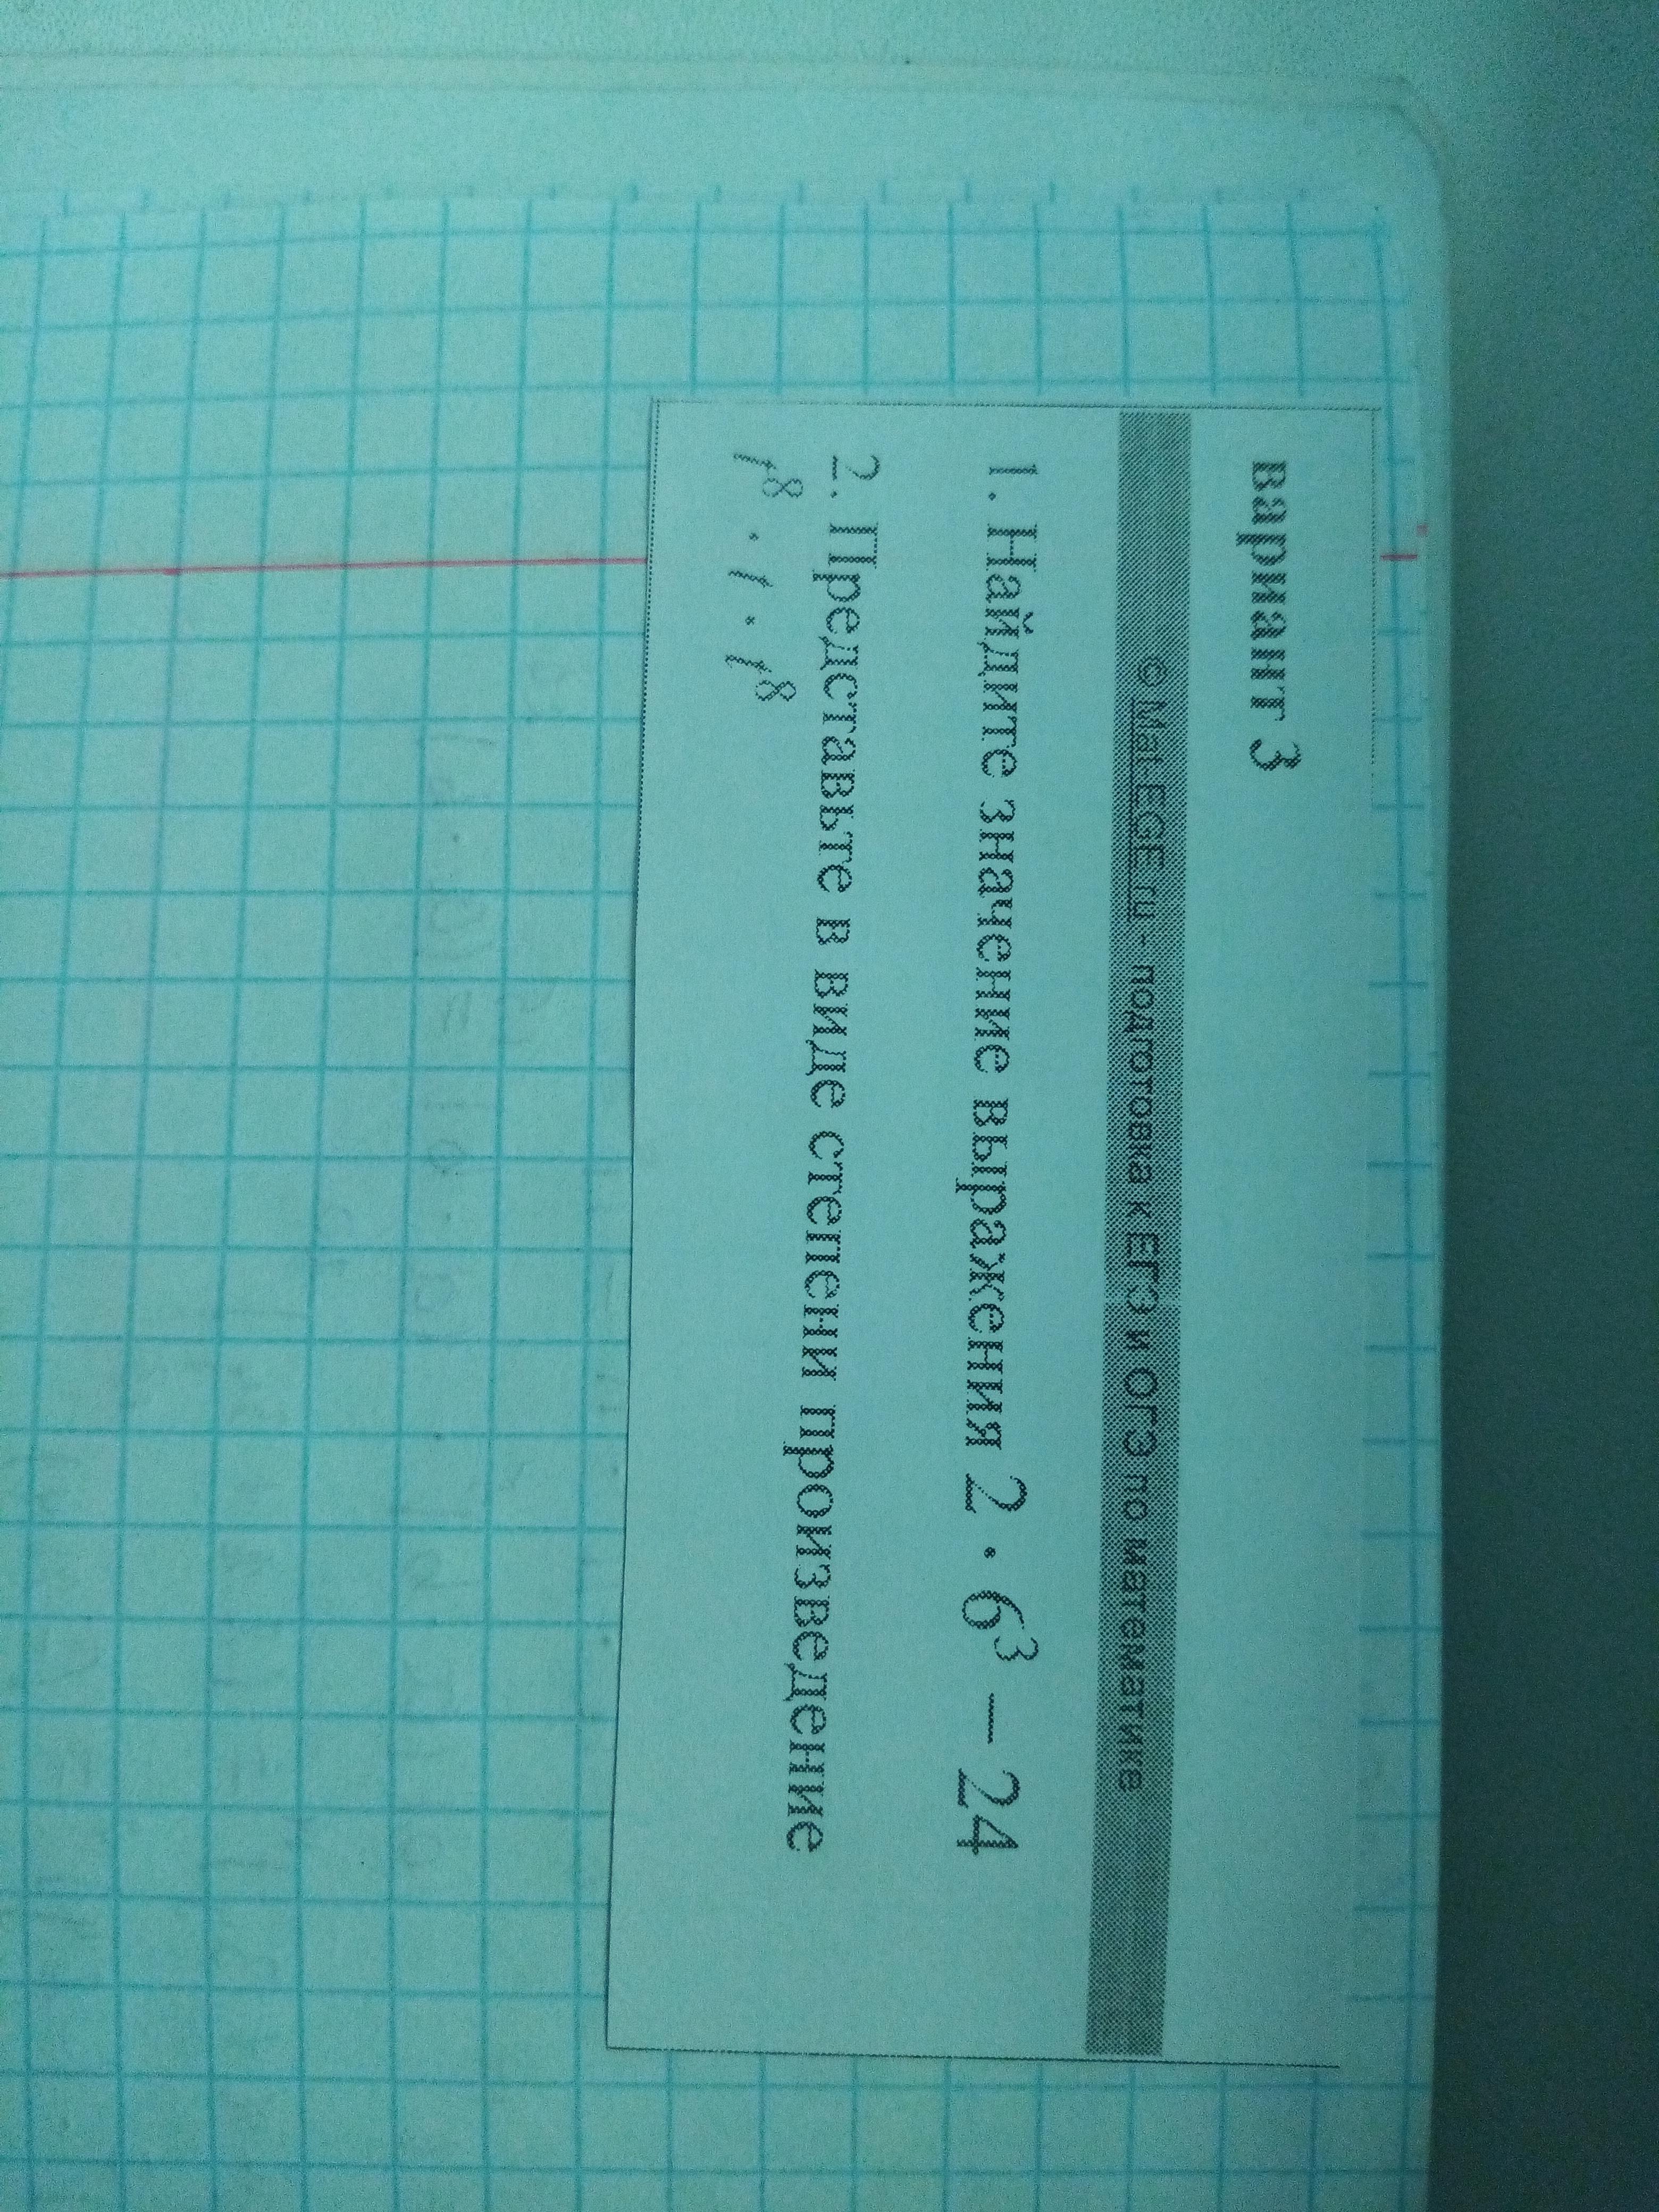 вариант 3
© Mat-EGE.ru - подготовка к ЕГЭ и ОГЭ по математике
1. Найдите значение выражения 2 · 6³ − 24
2. Представьте в виде степени произведение
t⁸ · t · t⁸